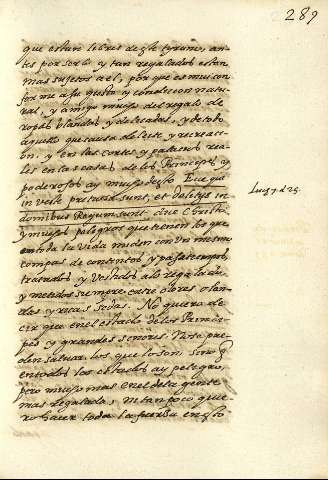 289
que estan libres deste tyrano, an-
tes por serlo y tan regalados estan
mas sujetos a el, por que es muy con
forme a su gusto y condicion natu
ral, y amigo mucho del regalo de
ropas blandas y delicadas, y de todo
aquello que causa deleite y recreaci
on, y en las cortes y palacios rea
les en las casas de los Principes y
poderosos ay mucho desto. Ecce qui
in veste pretiosa sunt, et delitijs in
domibus Regum sunt. dice Christo
y muchos peligros que tienen los que
en toda la vida miden con un mesmo
compas de contentos y pasatiempos,
traendos y vestidos a lo regalado
y metidos siempre entre olores olan
das y ricas sedas. No quiero de
cir que en el estado de los Princi
pes y grandes señores no se pue
den salvar los que lo son sino q
en todos los estados ay peligro,
pero mucho mas en el de la gente
mas regalada, ni tampoco quie
ro hacer toda la fuerça en esto
Luc 7. d 25.